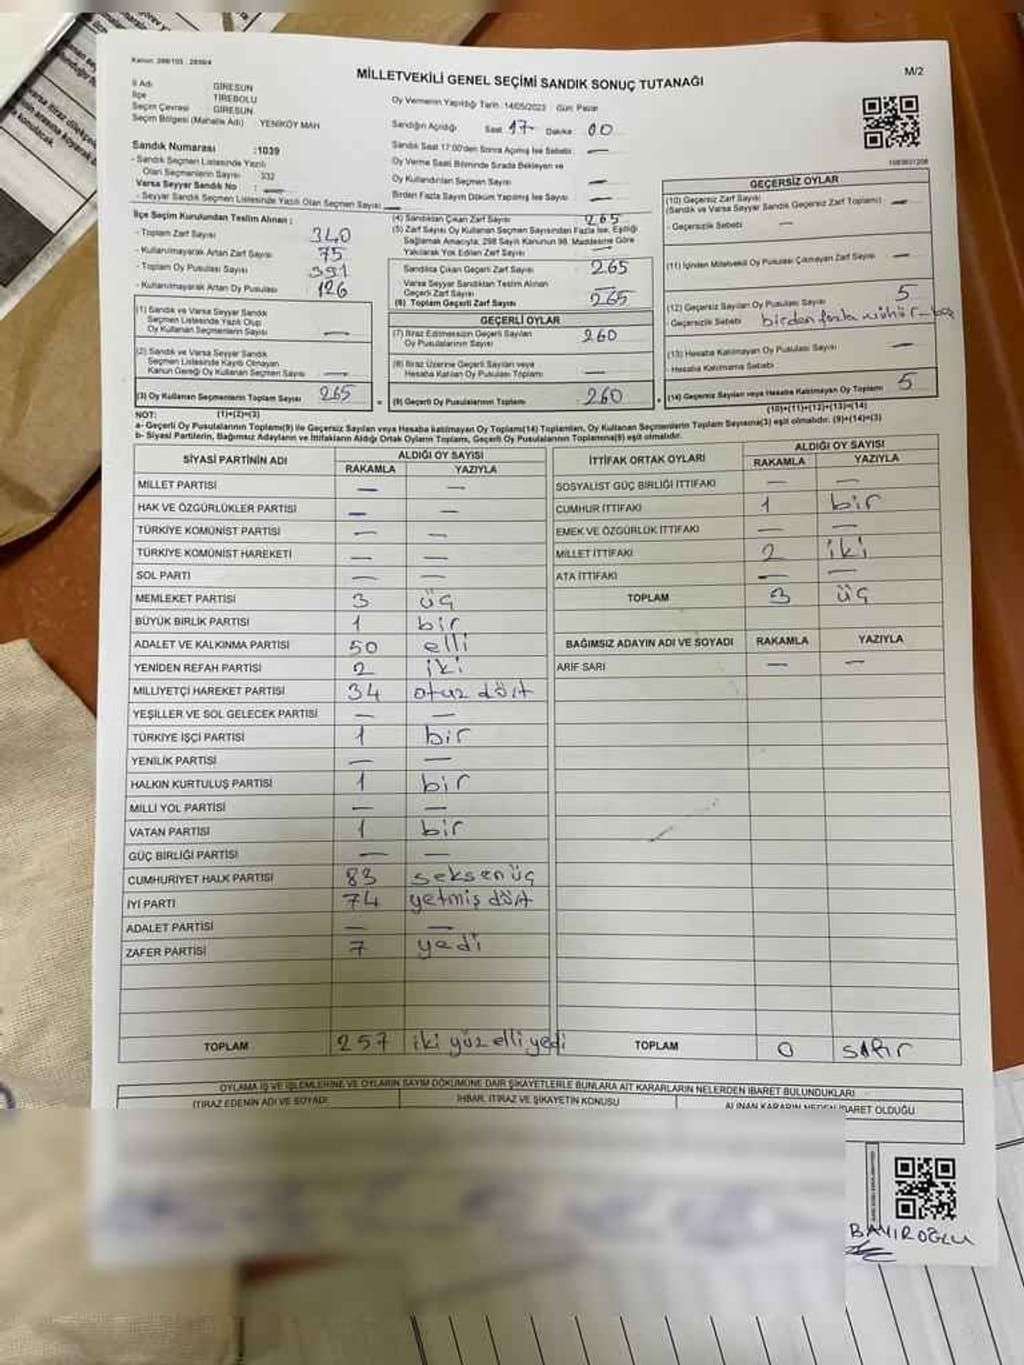 Kanun: 298/105 - 2839/4
MİLLETVEKİLİ GENEL SEÇİMİ SANDIK SONUÇ TUTANAĞI
M/2
İl Adı GİRESUN
İlçe TİREBOLU
Seçim Çevresi GİRESUN
Seçim Bölgesi (Mahalle Adı) YENİKÖY MAH
Sandık Numarası :1039
- Sandık Seçmen Listesinde Yazılı
Olan Seçmenlerin Sayısı 332
Varsa Seyyar Sandık No : —
- Seyyar Sandık Seçmen Listesinde Yazılı Olan Seçmen Sayısı —
Oy Vermenin Yapıldığı Tarih: 14/05/2023 Gün: Pazar
Sandığın Açıldığı Saat 17- Dakika 00
Sandık Saat 17:00'den Sonra Açılmış İse Sebebi —
Oy Verme Saati Bitiminde Sırada Bekleyen ve
Oy Kullandırılan Seçmen Sayısı —
Birden Fazla Sayım Döküm Yapılmış İse Sayısı —
İlçe Seçim Kurulundan Teslim Alınan :
- Toplam Zarf Sayısı 340
- Kullanılmayarak Artan Zarf Sayısı 75
- Toplam Oy Pusulası Sayısı 391
- Kullanılmayarak Artan Oy Pusulası 126
(1) Sandık ve Varsa Seyyar Sandık
Seçmen Listesinde Yazılı Olup
Oy Kullanan Seçmenlerin Sayısı —
(2) Sandık ve Varsa Seyyar Sandık
Seçmen Listesinde Kayıtlı Olmayan
Kanun Gereği Oy Kullanan Seçmen Sayısı —
(3) Oy Kullanan Seçmenlerin Toplam Sayısı 265
(4) Sandıktan Çıkan Zarf Sayısı 265
(5) Zarf Sayısı Oy Kullanan Seçmen Sayısından Fazla İse, Eşitliği
Sağlamak Amacıyla, 298 Sayılı Kanunun 98. Maddesine Göre
Yakılarak Yok Edilen Zarf Sayısı —
Sandıkta Çıkan Geçerli Zarf Sayısı 265
Varsa Seyyar Sandıktan Teslim Alınan
Geçerli Zarf Sayısı —
(6) Toplam Geçerli Zarf Sayısı 265
GEÇERLİ OYLAR
(7) İtiraz Edilmeksizin Geçerli Sayılan
Oy Pusulalarının Sayısı 260
(8) İtiraz Üzerine Geçerli Sayılan veya
Hesaba Katılan Oy Pusulası Toplamı —
(9) Geçerli Oy Pusulalarının Toplamı 260
GEÇERSİZ OYLAR
(10) Geçersiz Zarf Sayısı
(Sandık ve Varsa Seyyar Sandık Geçersiz Zarf Toplamı) —
- Geçersizlik Sebebi —
(11) İçinden Milletvekili Oy Pusulası Çıkmayan Zarf Sayısı —
(12) Geçersiz Sayılan Oy Pusulası Sayısı 5
- Geçersizlik Sebebi birden fazla mühür
(13) Hesaba Katılmayan Oy Pusulası Sayısı —
- Hesaba Katılmama Sebebi
(14) Geçersiz Sayılan veya Hesaba Katılmayan Oy Toplamı 5
NOT: (1)+(2)=(3) (10)+(11)+(12)+(13)=(14)
a- Geçerli Oy Pusulalarının Toplamı(9) ile Geçersiz Sayılan veya Hesaba katılmayan Oy Toplamı(14) Toplamları, Oy Kullanan Seçmenlerin Toplam Sayısına(3) eşit olmalıdır. (9)+(14)=(3)
b- Siyasi Partilerin, Bağımsız Adayların ve İttifakların Aldığı Ortak Oyların Toplamı, Geçerli Oy Pusulalarının Toplamına(9) eşit olmalıdır.
SİYASİ PARTİNİN ADI ALDIĞI OY SAYISI
RAKAMLA YAZIYLA
MİLLET PARTİSİ — —
HAK VE ÖZGÜRLÜKLER PARTİSİ — —
TÜRKİYE KOMÜNİST PARTİSİ — —
TÜRKİYE KOMÜNİST HAREKETİ — —
SOL PARTİ — —
MEMLEKET PARTİSİ 3 üç
BÜYÜK BİRLİK PARTİSİ 1 bir
ADALET VE KALKINMA PARTİSİ 50 elli
YENİDEN REFAH PARTİSİ 2 iki
MİLLİYETÇİ HAREKET PARTİSİ 34 otuz dört
YEŞİLLER VE SOL GELECEK PARTİSİ — —
TÜRKİYE İŞÇİ PARTİSİ 1 bir
YENİLİK PARTİSİ — —
HALKIN KURTULUŞ PARTİSİ 1 bir
MİLLİ YOL PARTİSİ — —
VATAN PARTİSİ 1 bir
GÜÇ BİRLİĞİ PARTİSİ — —
CUMHURİYET HALK PARTİSİ 83 seksen üç
İYİ PARTİ 74 yetmiş dört
ADALET PARTİSİ — —
ZAFER PARTİSİ 7 yedi
TOPLAM 257 iki yüz elli yedi
İTTİFAK ORTAK OYLARI ALDIĞI OY SAYISI
RAKAMLA YAZIYLA
SOSYALİST GÜÇ BİRLİĞİ İTTİFAKI — —
CUMHUR İTTİFAKI 1 bir
EMEK VE ÖZGÜRLÜK İTTİFAKI — —
MİLLET İTTİFAKI 2 iki
ATA İTTİFAKI — —
TOPLAM 3 üç
BAĞIMSIZ ADAYIN ADI VE SOYADI RAKAMLA YAZIYLA
ARİF SARI — —
TOPLAM 0 sıfır
OYLAMA İŞ VE İŞLEMLERİNE VE OYLARIN SAYIM DÖKÜMÜNE DAİR ŞİKAYETLERLE BUNLARA AİT KARARLARIN NELERDEN İBARET BULUNDUKLARI
İTİRAZ EDENİN ADI VE SOYADI İHBAR, İTİRAZ VE ŞİKAYETİN KONUSU ALINAN KARARIN NEDEN İBARET OLDUĞU
BAYIROĞLU